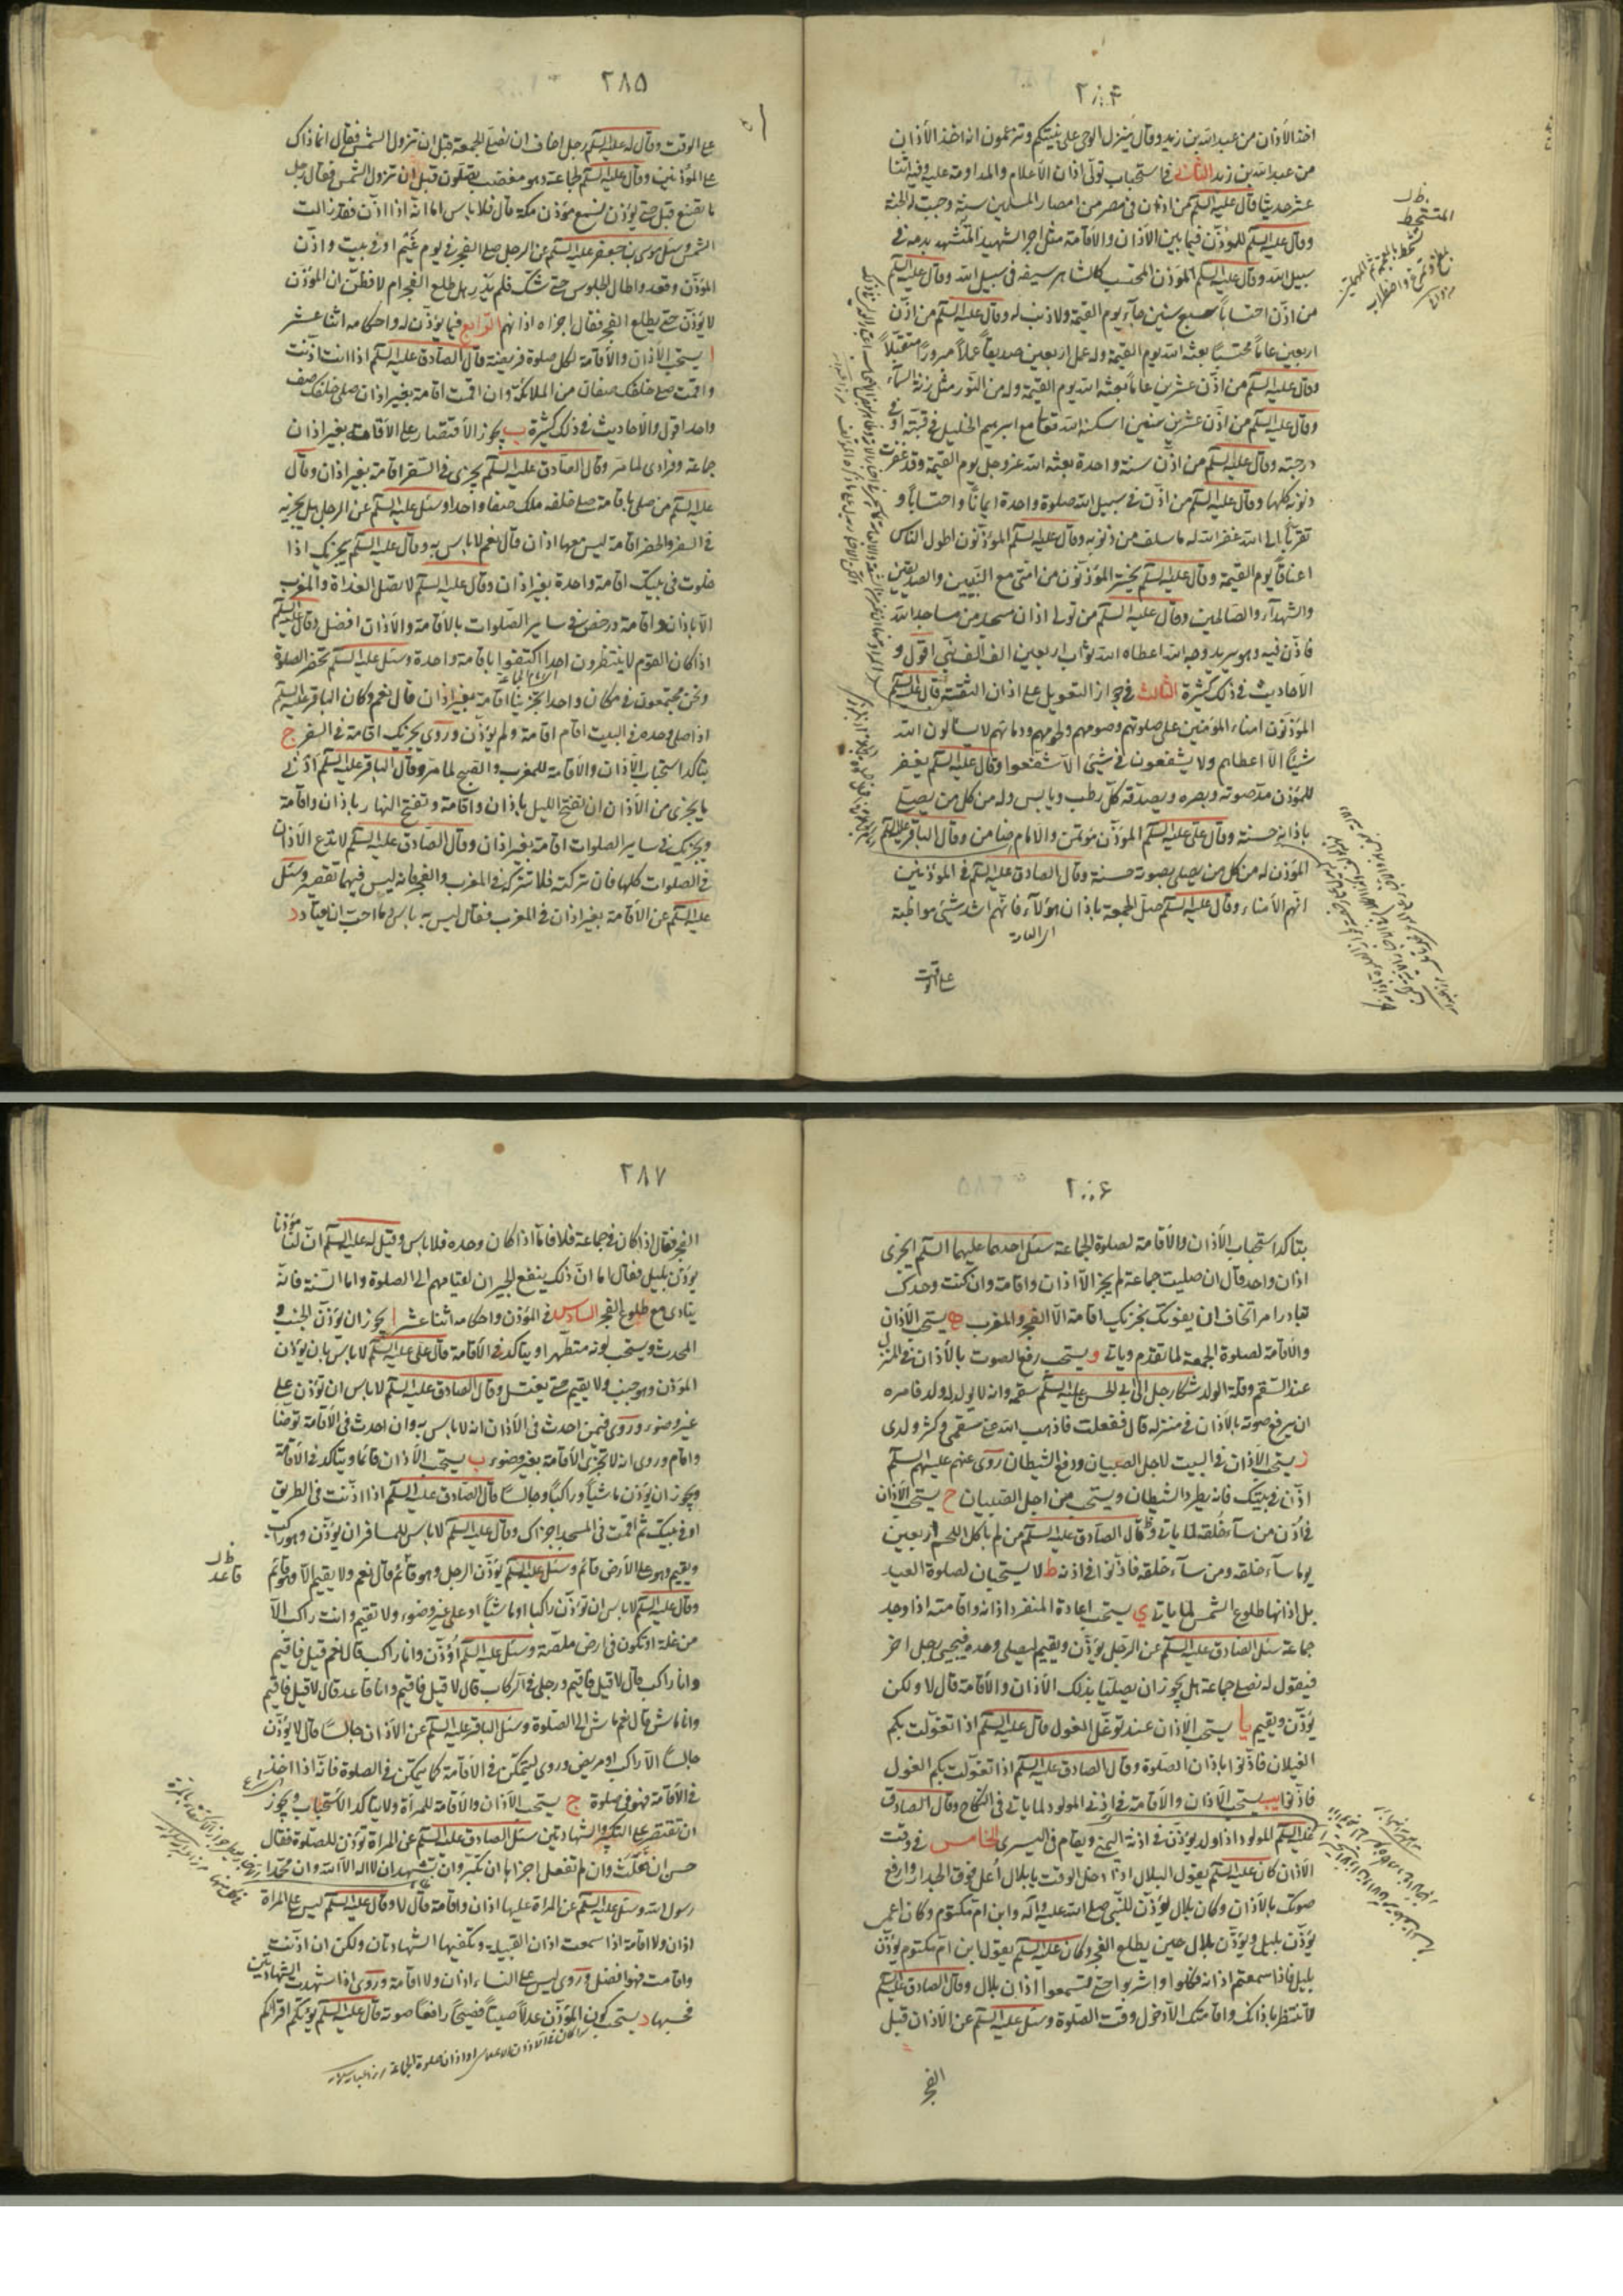 ٢٨٤
اخذ الأذان من عبد الله بن زيد وقال ينزل الوحى على نبيّكم وتزعمون انه اخذ الأذان
من عبد الله بن زيد الثانى فى استحباب تولّى اذان الأعلام والمداومة عليه وفيه اثنا
عشر حديثا قال عليه السلم من اذّن فى مصر من امصار المسلمين سنة وجبت له الجنّة
وقال عليه السلم للمؤذّن فيما بين الاذان والاقامة مثل اجر الشهيد المتشهد بدمه فى
سبيل الله وقال عليه السلم المؤذن المحتسب كالشاهر سيفه فى سبيل الله وقال عليه السلم
من اذّن احتسابا سبع سنين جاء يوم القيمة ولا ذنب له وقال عليه السلم من اذّن
اربعين عاماً محتسباً بعثه الله يوم القيمة وله عمل اربعين صديقاً عملاً مبروراً متقبّلاً
وقال عليه السلم من اذّن عشرين عاماً بعثه الله يوم القيمة وله من النّور مثل زنة السّمآء
وقال عليه السلم من اذّن عشر سنين اسكنه الله مع ابرهيم الخليل فى قبّته او فى
درجته وقال عليه السلم من اذّن سنة واحدة بعثه الله عز وجل يوم القيمة وقد غفرت
ذنوبه كلها وقال عليه السلم من اذّن فى سبيل الله صلوة واحدة ايماناً واحتساباً و
تقرباً الى الله غفر الله له ما سلف من ذنوبه وقال عليه السلم المؤذّنون اطول الناس
اعناقاً يوم القيمة وقال عليه السلم يحشر المؤذّنون من امّتى مع النّبيين والصدّيقين
والشهدآء والصّالحين وقال عليه السلم من تولى اذان مسجد من مساجد الله
فاذّن فيه وهو يريد وجه الله اعطاه الله ثواب اربعين الف الف نبيّ اقول و
الأحاديث فى ذلك كثيرة الثالث فى جواز التعويل على اذان الثقة قال عليه السلم
المؤذّنون امناء المؤمنين على صلوتهم وصومهم ولحومهم ودمائهم لا يسألون الله
شيئاً الّا اعطاهم ولا يشفعون فى شيئ الّا شفّعوا وقال عليه السلم يغفر
للمؤذن مدّ صوته وبصره ويصدّقه كلّ رطب ويابس وله من كل من يصلّى
باذانه حسنة وقال علىّ عليه السلم المؤذّن مؤتمن والامام ضامن وقال الباقر عليه السلم
المؤذن له من كل من يصلى بصوته حسنة وقال الصادق عليه السلم فى المؤذنين
انّهم الأمناء وقال عليه السلم صلّ الجمعة باذان هؤلآء فانّهم اشد شيئ مواظبة
٢٨٥
على الوقت وقال له عليه السلم رجل اخاف ان نصلّى الجمعة قبل ان تزول الشمس فقال انما ذاك
على المؤذنين وقال عليه السلم لجماعة وهو مغضب يصلون قبل ان تزول الشمس فقال رجل
ما نصنع قبل حتى يؤذن نسمع مؤذن مكة قال فلا بأس اما انّه اذا اذّن فقد زالت
الشمس وسئل موسى بن جعفر عليه السلم عن الرجل صلى الفجر فى يوم غيم او فى بيت واذّن
المؤذّن وقعد واطال الجلوس حتى شكّ فلم يدر هل طلع الفجر ام لا فظنّ ان المؤذن
لا يؤذّن حتى يطلع الفجر فقال اجزاه اذانهم الرّابع فيما يؤذّن له واحكامه اثنا عشر
ا يستحبّ الأذان والأقامة لكل صلوة فريضة قال الصادق عليه السلم اذا انت اذّنت
واقمت صلّى خلفك صفّان من الملائكة وان اقمت اقامة بغير اذان صلى خلفك صف
واحد اقول والأحاديث فى ذلك كثيرة ب يجوز الأقتصار على الأقامة بغير اذان
جماعة وفرادى لما مر وقال الصّادق عليه السلم يجزى فى السّفر اقامة بغير اذان وقال
عليه السلم من صلى باقامة صلى خلفه ملك صفا واحدا وسئل عليه السلم عن الرجل هل يجزيه
فى السفر والحضر اقامة ليس معها اذان قال نعم لا باس به وقال عليه السلم يجزيك اذا
خلوت فى بيتك اقامة واحدة بغير اذان وقال عليه السلم لا تصل الغداة والمغرب
الّا باذان واقامة ورخص فى ساير الصّلوات بالأقامة والأذان افضل وقال عليه السلم
اذا كان القوم لا ينتظرون احدا اكتفوا باقامة واحدة وسئل عليه السلم تحضر الصلوة
ونحن مجتمعون فى مكان واحد اتجزينا اقامة بغير اذان قال نعم وكان الباقر عليه السلم
اذا صلى وحده فى البيت اقام اقامة ولم يؤذّن وروى يجزيك اقامة فى السفر ج
يتاكد استحباب الأذان والأقامة للمغرب والصبح لما مر وقال الباقر عليه السلم ادنى
ما يجزى من الأذان ان تفتح الليل باذان واقامة وتفتح النهار باذان واقامة
ويجزيك فى ساير الصلوات اقامة بغير اذان وقال الصّادق عليه السلم لا تدع الأذان
فى الصلوات كلها فان تركته فلا تتركه فى المغرب والفجر فانه ليس فيهما تقصير وسئل
عليه السلم عن الأقامة بغير اذان فى المغرب فقال ليس به باس وما احب ان يعتاد د
٢٨٦
يتاكد استحباب الأذان والأقامة لصلوة الجماعة سئل احدهما عليهما السلم ايجزى
اذان واحد قال ان صليت جماعة لم يجز الّا اذان واقامة وان كنت وحدك
تبادر امرا تخاف ان يفوتك يجزيك اقامة الّا الفجر والمغرب ه يستحب الأذان
والأقامة لصلوة الجمعة لما تقدم وياتى و يستحب رفع الصوت بالأذان فى المنزل
عند السّقم وقلة الولد شكا رجل الى ابى الحسن عليه السلم سقمه وانه لا يولد له ولد فامره
ان يرفع صوته بالأذان فى منزله قال ففعلت فاذهب الله عنى سقمى وكثر ولدى
ز يستحب الأذان فى البيت لاجل الصبيان ودفع الشيطان روى عنهم عليهم السلم
اذّن فى بيتك فانه يطرد الشيطان ويستحب من اجل الصبيان ح يستحب الأذان
فى اذن من ساء خلقه لما ياتى وقال الصّادق عليه السلم من لم ياكل اللحم اربعين
يوما ساء خلقه ومن سآء خلقه فاذّنوا فى اذنه ط لا يستحبان لصلوة العيد
بل اذانها طلوع الشمس لما ياتى ي يستحب اعادة المنفرد اذانه واقامته اذا وجد
جماعة سئل الصّادق عليه السلم عن الرجل يؤذّن ويقيم ليصلى وحده فيجيئ رجل اخر
فيقول له نصلى جماعة هل يجوز ان يصليا بذلك الأذان والأقامة قال لا ولكن
يؤذّن ويقيم يا يستحب الأذان عند تغوّل الغول قال عليه السلم اذا تغوّلت بكم
الغيلان فاذّنوا باذان الصّلوة وقال الصادق عليه السلم اذا تغوّلت بكم الغول
فاذّنوا يب يستحب الأذان والأقامة فى اذنى المولود لما ياتى فى النكاح وقال الصادق
عليه السلم المولود اذا ولد يؤذّن فى اذنه اليمنى ويقام فى اليسرى الخامس فى وقت
الأذان كان عليه السلم يقول لبلال اذا دخل الوقت يا بلال اعل فوق الجدار وارفع
صوتك بالأذان وكان بلال يؤذّن للنّبى صلى الله عليه واله وابن ام مكتوم وكان اعمى
يؤذّن بليل ويؤذّن بلال حين يطلع الفجر وكان عليه السلم يقول ابن امّ مكتوم يؤذّن
بليل فاذا سمعتم اذانه فكلوا واشربوا حتى تسمعوا اذان بلال وقال الصادق عليه السلم
لا تنتظر باذانك واقامتك الّا دخول وقت الصّلوة وسئل عليه السلم عن الأذان قبل
الفجر
٢٨٧
الفجر فقال اذا كان فى جماعة فلا فاما اذا كان وحده فلا باس وقيل له عليه السلم ان لنا مؤذنا
يؤذّن بليل فقال اما انّ ذلك ينفع الجيران لقيامهم الى الصلوة واما السّنة فانّه
ينادى مع طلوع الفجر السادس فى المؤذن واحكامه اثنا عشر ا يجوز ان يؤذّن الجنب و
المحدث ويستحب كونه متطهرا ويتاكد فى الأقامة قال على عليه السلم لا باس بان يؤذن
المؤذن وهو جنب ولا يقيم حتى يغتسل وقال الصادق عليه السلم لا باس ان تؤذن على
غير وضوء وروى فيمن احدث فى الأذان انه لا باس به وان احدث فى الأقامة توضأ
واقام وروى انه لا تجزى الأقامة بغير وضوء ب يستحب الأذان قائما ويتاكد فى الأقامة
ويجوز ان يؤذن ماشياً وراكباً وجالساً قال الصّادق عليه السلم اذا اذّنت فى الطريق
او فى بيتك ثم اقمت فى المسجد اجزاك وقال عليه السلم لا باس للمسافر ان يؤذّن وهو راكب
ويقيم وهو على الأرض قائم وسئل عليه السلم يؤذّن الرجل وهو قائم قال نعم ولا يقيم الّا وهو قائم
وقال عليه السلم لا باس ان تؤذّن راكبا او ماشياً او على غير وضوء ولا تقيم وانت راكب الّا
من علة او تكون فى ارض ملصّة وسئل عليه السلم اؤذّن وانا راكب قال نعم قيل فاقيم
وانا راكب قال لا قيل فاقيم ورجلى فى الركاب قال لا قيل فاقيم وانا قاعد قال لا قيل فاقيم
وانا ماش قال نعم ماش الى الصّلوة وسئل الباقر عليه السلم عن الأذان جالساً قال لا يؤذّن
جالساً الّا راكب او مريض وروى ليتمكن فى الأقامة كما يتمكن فى الصلوة فانّه اذا اخذ
فى الأقامة فهو فى صلوة ج يستحب الأذان والأقامة للمرأة ولا يتاكد الأستحباب ويجوز
ان تقتصر على التكبير والشهادتين سئل الصادق عليه السلم عن المراة تؤذن للصّلوة فقال
حسن ان فعلت وان لم تفعل اجزاها ان تكبّر وان تشهد ان لا اله الّا الله وان محمّدا
رسول الله وسئل عليه السلم عن المراة عليها اذان واقامة قال لا وقال عليه السلم ليس على المراة
اذان ولا اقامة اذا سمعت اذان القبيلة وتكفيها الشهادتان ولكن ان اذّنت
واقامت فهو افضل وروى ليس على النساء اذان ولا اقامة وروى اذا شهدت الشهادتين
فحسبها د يستحب كون المؤذّن عدلاً صيتاً فصيحاً رافعاً صوته قال عليه السلم يؤمّكم اقراكم